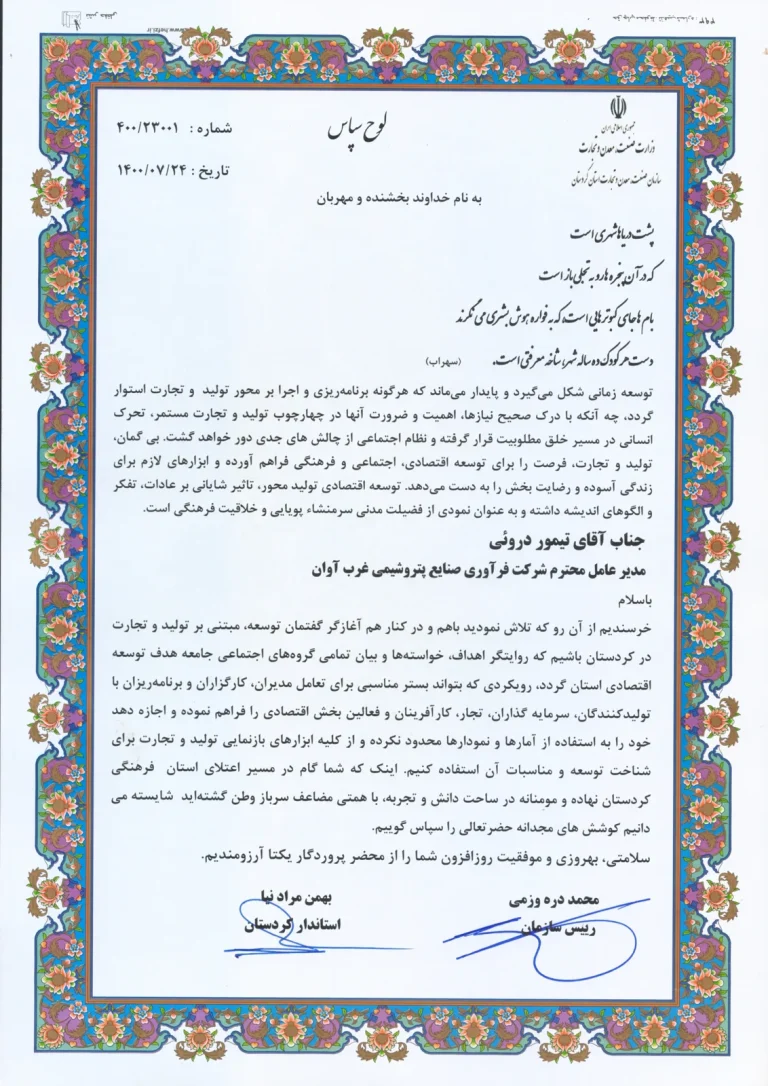 جمهوری اسلامی ایران
وزارت صنعت، معدن و تجارت
سازمان صنعت، معدن و تجارت استان کردستان
لوح سپاس
شماره : ۴۰۰/۲۳۰۰۱
تاریخ : ۱۴۰۰/۰۷/۲۴
به نام خداوند بخشنده و مهربان
پشت دریاها شهری است
که در آن پنجره ها رو به تجلی باز است
بام ها جای کبوترهایی است، که به فواره هوش بشری می نگرند
دست هر کودک ده ساله شهر، شاخه معرفتی است. (سهراب)
توسعه زمانی شکل می‌گیرد و پایدار می‌ماند که هرگونه برنامه‌ریزی و اجرا بر محور تولید و تجارت استوار
گردد، چه آنکه با درک صحیح نیازها، اهمیت و ضرورت آنها در چهارچوب تولید و تجارت مستمر، تحرک
انسانی در مسیر خلق مطلوبیت قرار گرفته و نظام اجتماعی از چالش های جدی دور خواهد گشت. بی گمان،
تولید و تجارت، فرصت را برای توسعه اقتصادی، اجتماعی و فرهنگی فراهم آورده و ابزارهای لازم برای
زندگی آسوده و رضایت بخش را به دست می‌دهد. توسعه اقتصادی تولید محور، تاثیر شایانی بر عادات، تفکر
و الگوهای اندیشه داشته و به عنوان نمودی از فضیلت مدنی سرمنشاء پویایی و خلاقیت فرهنگی است.
جناب آقای تیمور دروئی
مدیر عامل محترم شرکت فرآوری صنایع پتروشیمی غرب آوان
باسلام
خرسندیم از آن رو که تلاش نمودید باهم و در کنار هم آغازگر گفتمان توسعه، مبتنی بر تولید و تجارت
در کردستان باشیم که روایتگر اهداف، خواسته‌ها و بیان تمامی گروه‌های اجتماعی جامعه هدف توسعه
اقتصادی استان گردد، رویکردی که بتواند بستر مناسبی برای تعامل مدیران، کارگزاران و برنامه‌ریزان با
تولیدکنندگان، سرمایه گذاران، تجار، کارآفرینان و فعالین بخش اقتصادی را فراهم نموده و اجازه دهد
خود را به استفاده از آمارها و نمودارها محدود نکرده و از کلیه ابزارهای بازنمایی تولید و تجارت برای
شناخت توسعه و مناسبات آن استفاده کنیم. اینک که شما گام در مسیر اعتلای استان فرهنگی
کردستان نهاده و مومنانه در ساحت دانش و تجربه، با همتی مضاعف سرباز وطن گشته‌اید شایسته می
دانیم کوشش های مجدانه حضرتعالی را سپاس گوییم.
سلامتی، بهروزی و موفقیت روزافزون شما را از محضر پروردگار یکتا آرزومندیم.
محمد دره وزمی
رییس سازمان
بهمن مراد نیا
استاندار کردستان